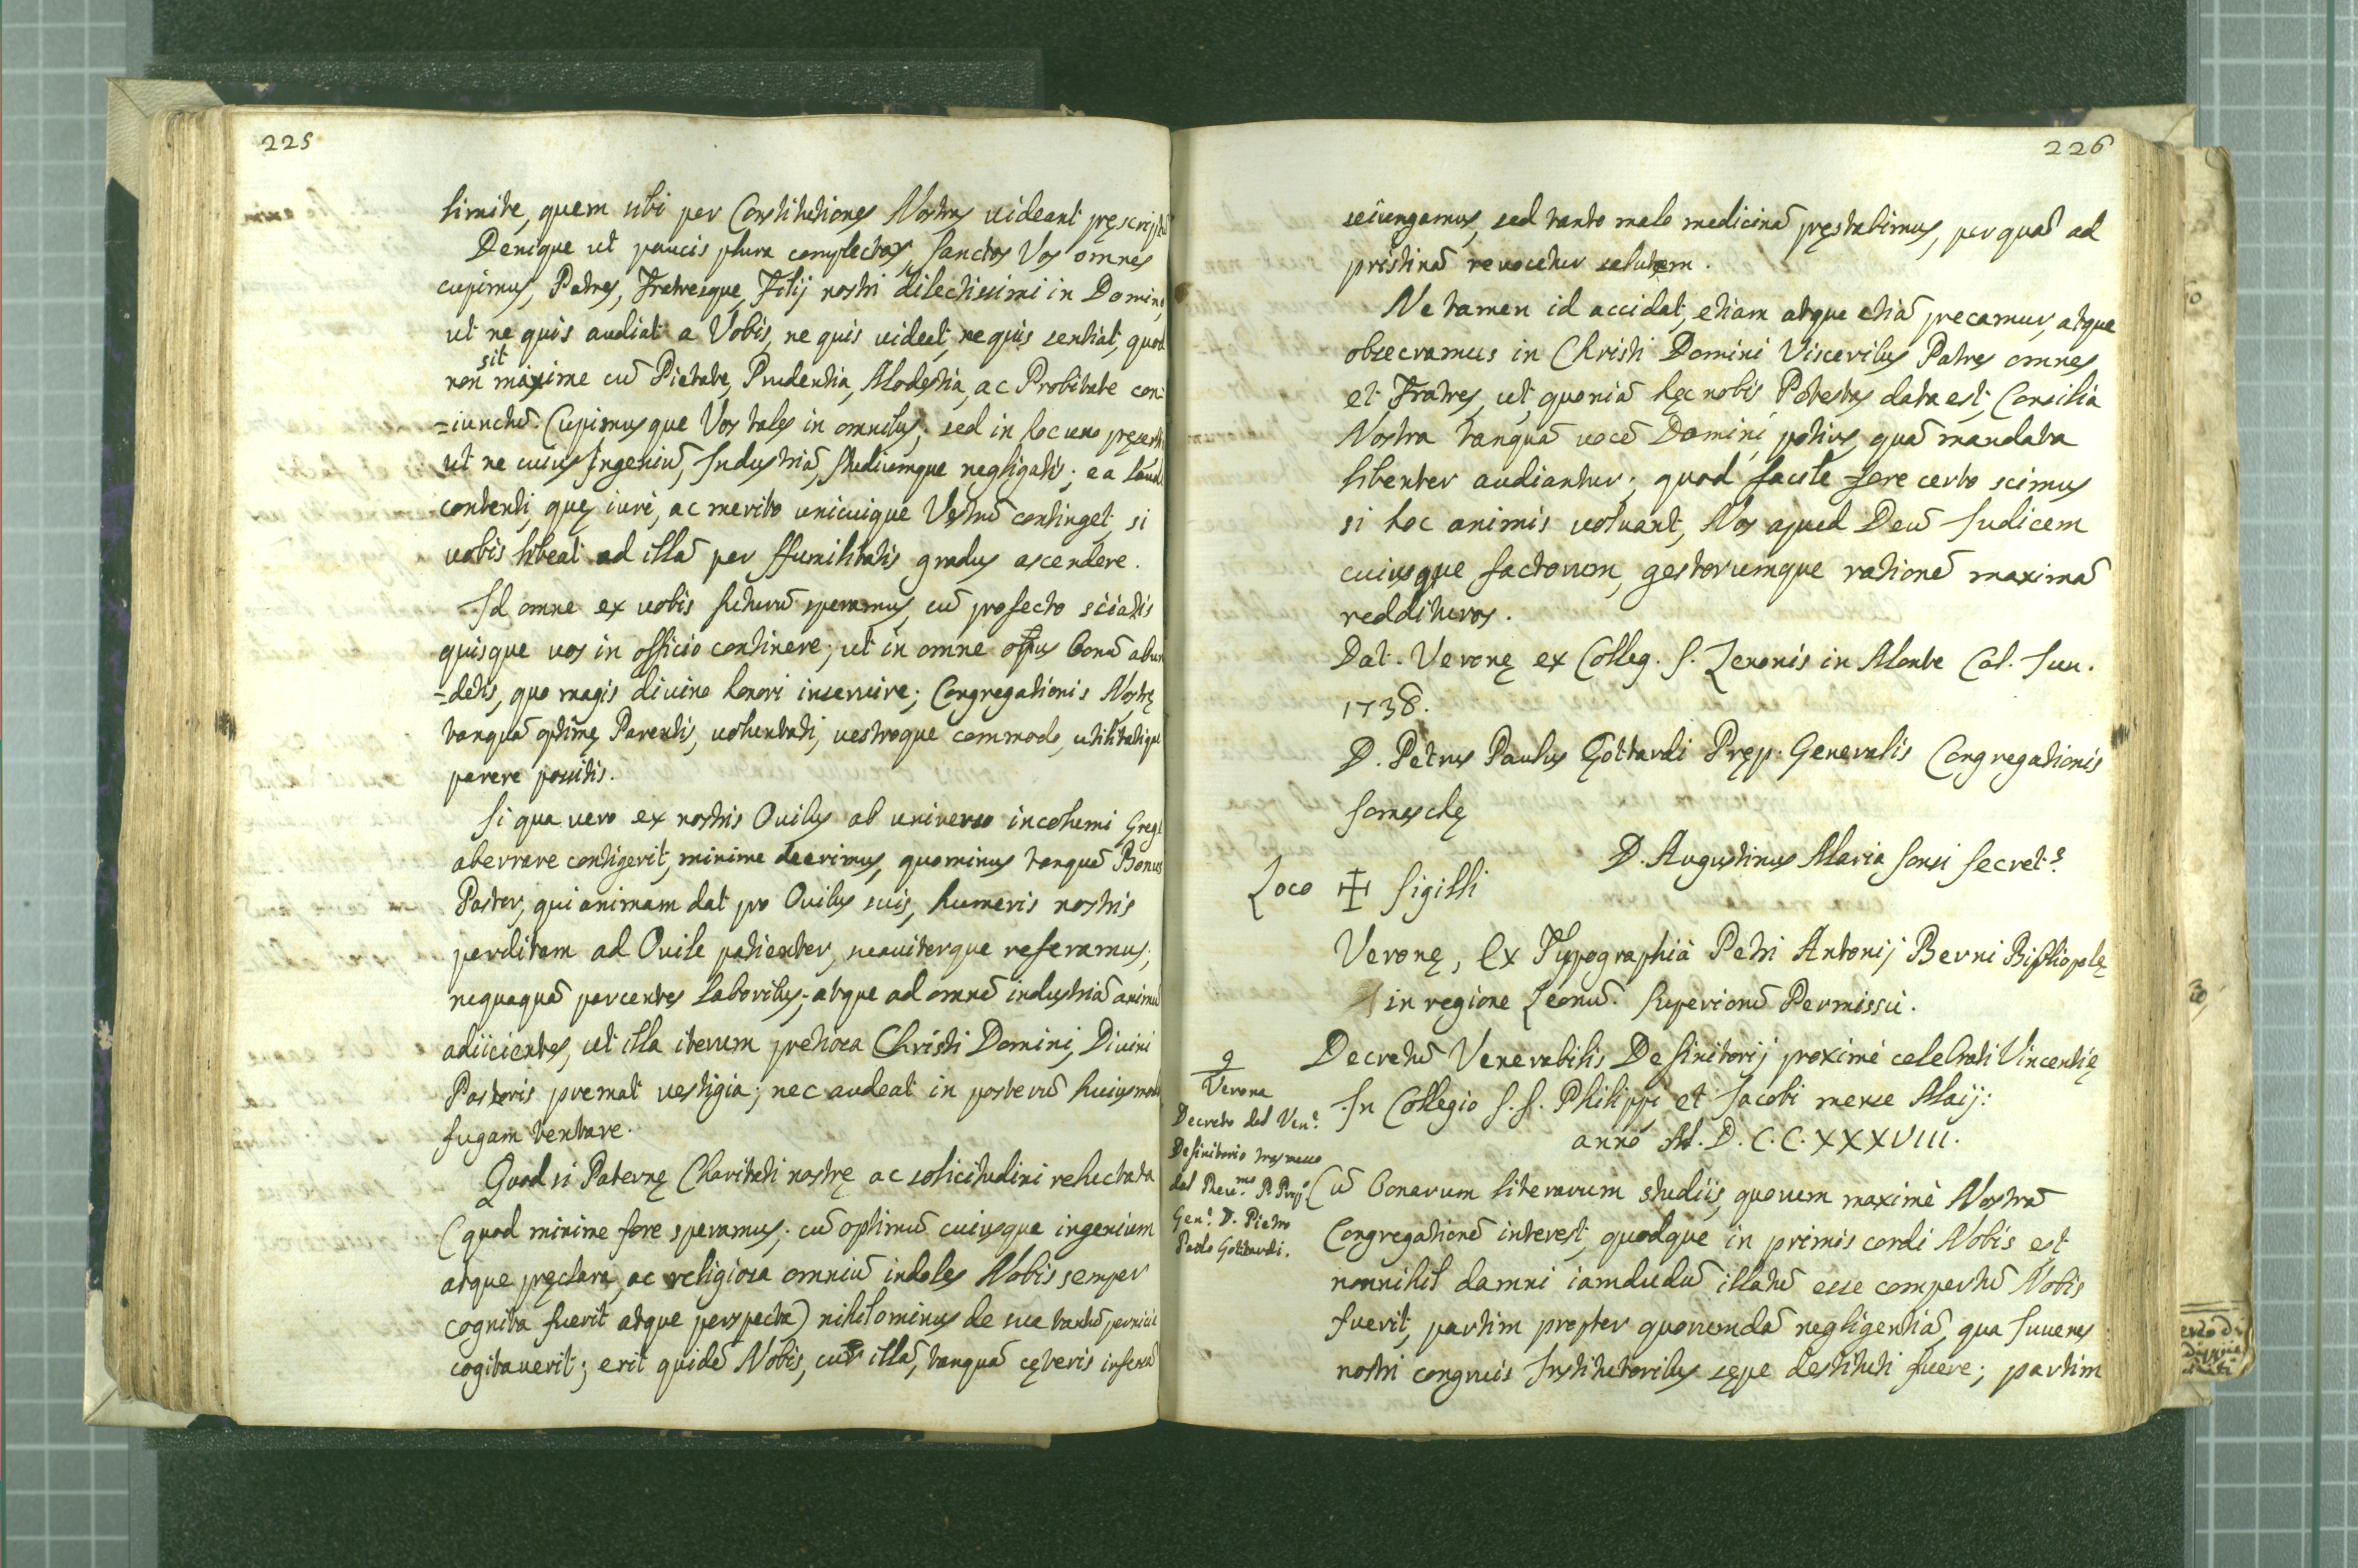 225
limite, quem sibi per Constitutiones Nostras uideant pręscriptũ
Denique ut paucis plura complectar, Sanctos Vos omnes
cupimus, Patres, Fratresque, Filij nostri dilectissimi in Domino,
ut ne quis audiat a Vobis, ne quis uideat, ne quis sentiat, quod
non sit maxime cũ Pietate, Prudentia, Modestia, ac Probitate con=
=iunctũ. Cupimusque Vos tales in omnibus; sed in hoc uno pręserti
ut ne cuius Ingeniũ, Industriã, Studiumque negligatis; ea laude
contenti, quę iuri, ac merito unicuique Vestrũ continget, si
uobis libeat ad illã per Humilitatis gradus ascendere.
Id omne ex uobis futurũ speramus, cũ profecto sciatis
quisque uos in officio continere; ut in omne opus bonũ abun
=detis, quo magis divino honori inservire; Congregationis Nostrę
tanquã optimę Parentis, uoluntati, uestroque commodo, utilitatique
parere possitis.
Si qua uero ex nostris Ovibus ab universo incolumi Grege
aberrare contigerit, minime deerimus, quominus tanquã Bonus
Pastor, qui animam dat pro Ovibus suis, humeris nostris
perditam ad Ovile patienter, suaviterque referamus;
nequaquã parcentes laboribus; atque ad omnẽ industriã animũ
adiicientes, ut illa iterum pretiosa Christi Domini, Divini
Pastoris premat vestigia; nec audeat in posterũ huiusmodi
fugam tentare.
Quod si Paternę Charitati nostrę ac solicitudini reluctata
(quod minime fore speramus; cũ optimũ cuiusque ingenium
atque pręclara, ac religiosa omniũ indoles Nobis semper
cognita fuerit atque perspecta) nihilominus de sua tantũ pernicie
cogitaverit; erit quidẽ Nobis, cur illã, tanquã cęteris infensã
226
seiungamus, sed tanto malo medicinã pręstabimus, per quã ad
pristinã revocetur salutem.
Ne tamen id accidat, etiam atque etiã precamur, atque
obsecramus in Christi Domini Visceribus Patres omnes
et Fratres, ut, quoniã hęc nobis Potestas data est, Consilia
Nostra tanquã uocẽ Domini, potius, quã mandata
libenter audiantur; quod facile fore certo scimus
si hoc animis voluant, Nos apud Deũ Iudicem
cuiusque factorum, gestorumque rationẽ maximã
reddituros.
Dat. Veronę ex Colleg. S. Zenonis in Monte Cal. Iun.
1738.
D. Petrus Paulus Gottardi Pręp. Generalis Congregationis
Somaschę
D. Augustinus Maria Sonsi Secret.s
Loco ✠ Sigilli
Veronę, Ex Typographià Petri Antonij Berni Bibliopolę
in regione Leonũ. Superiorũ Permissu.
9
Verona
Decreto del Ven.e
Definitorio trasmesso
dal Reu.mo P. Prep.o
Gen.e D. Pietro
Paolo Gottardi.
Decretũ Venerabilis Definitorij proximè celebrati Vincentię
In Collegio S.S. Philippi et Iacobi mense Maij:
anno M. D. C. C. XXXVIII.
Cũ bonarum literarum studiis, quorum maximè Nostrã
Congregationẽ interest, quodque in primis cordi Nobis est
nonnihil damni iamdudũ illatũ esse compertũ Nobis
fuerit, partim propter quorumdã negligentiã, qua Iuvenes
nostri congruis Institutoribus sępe destituti fuere; partim